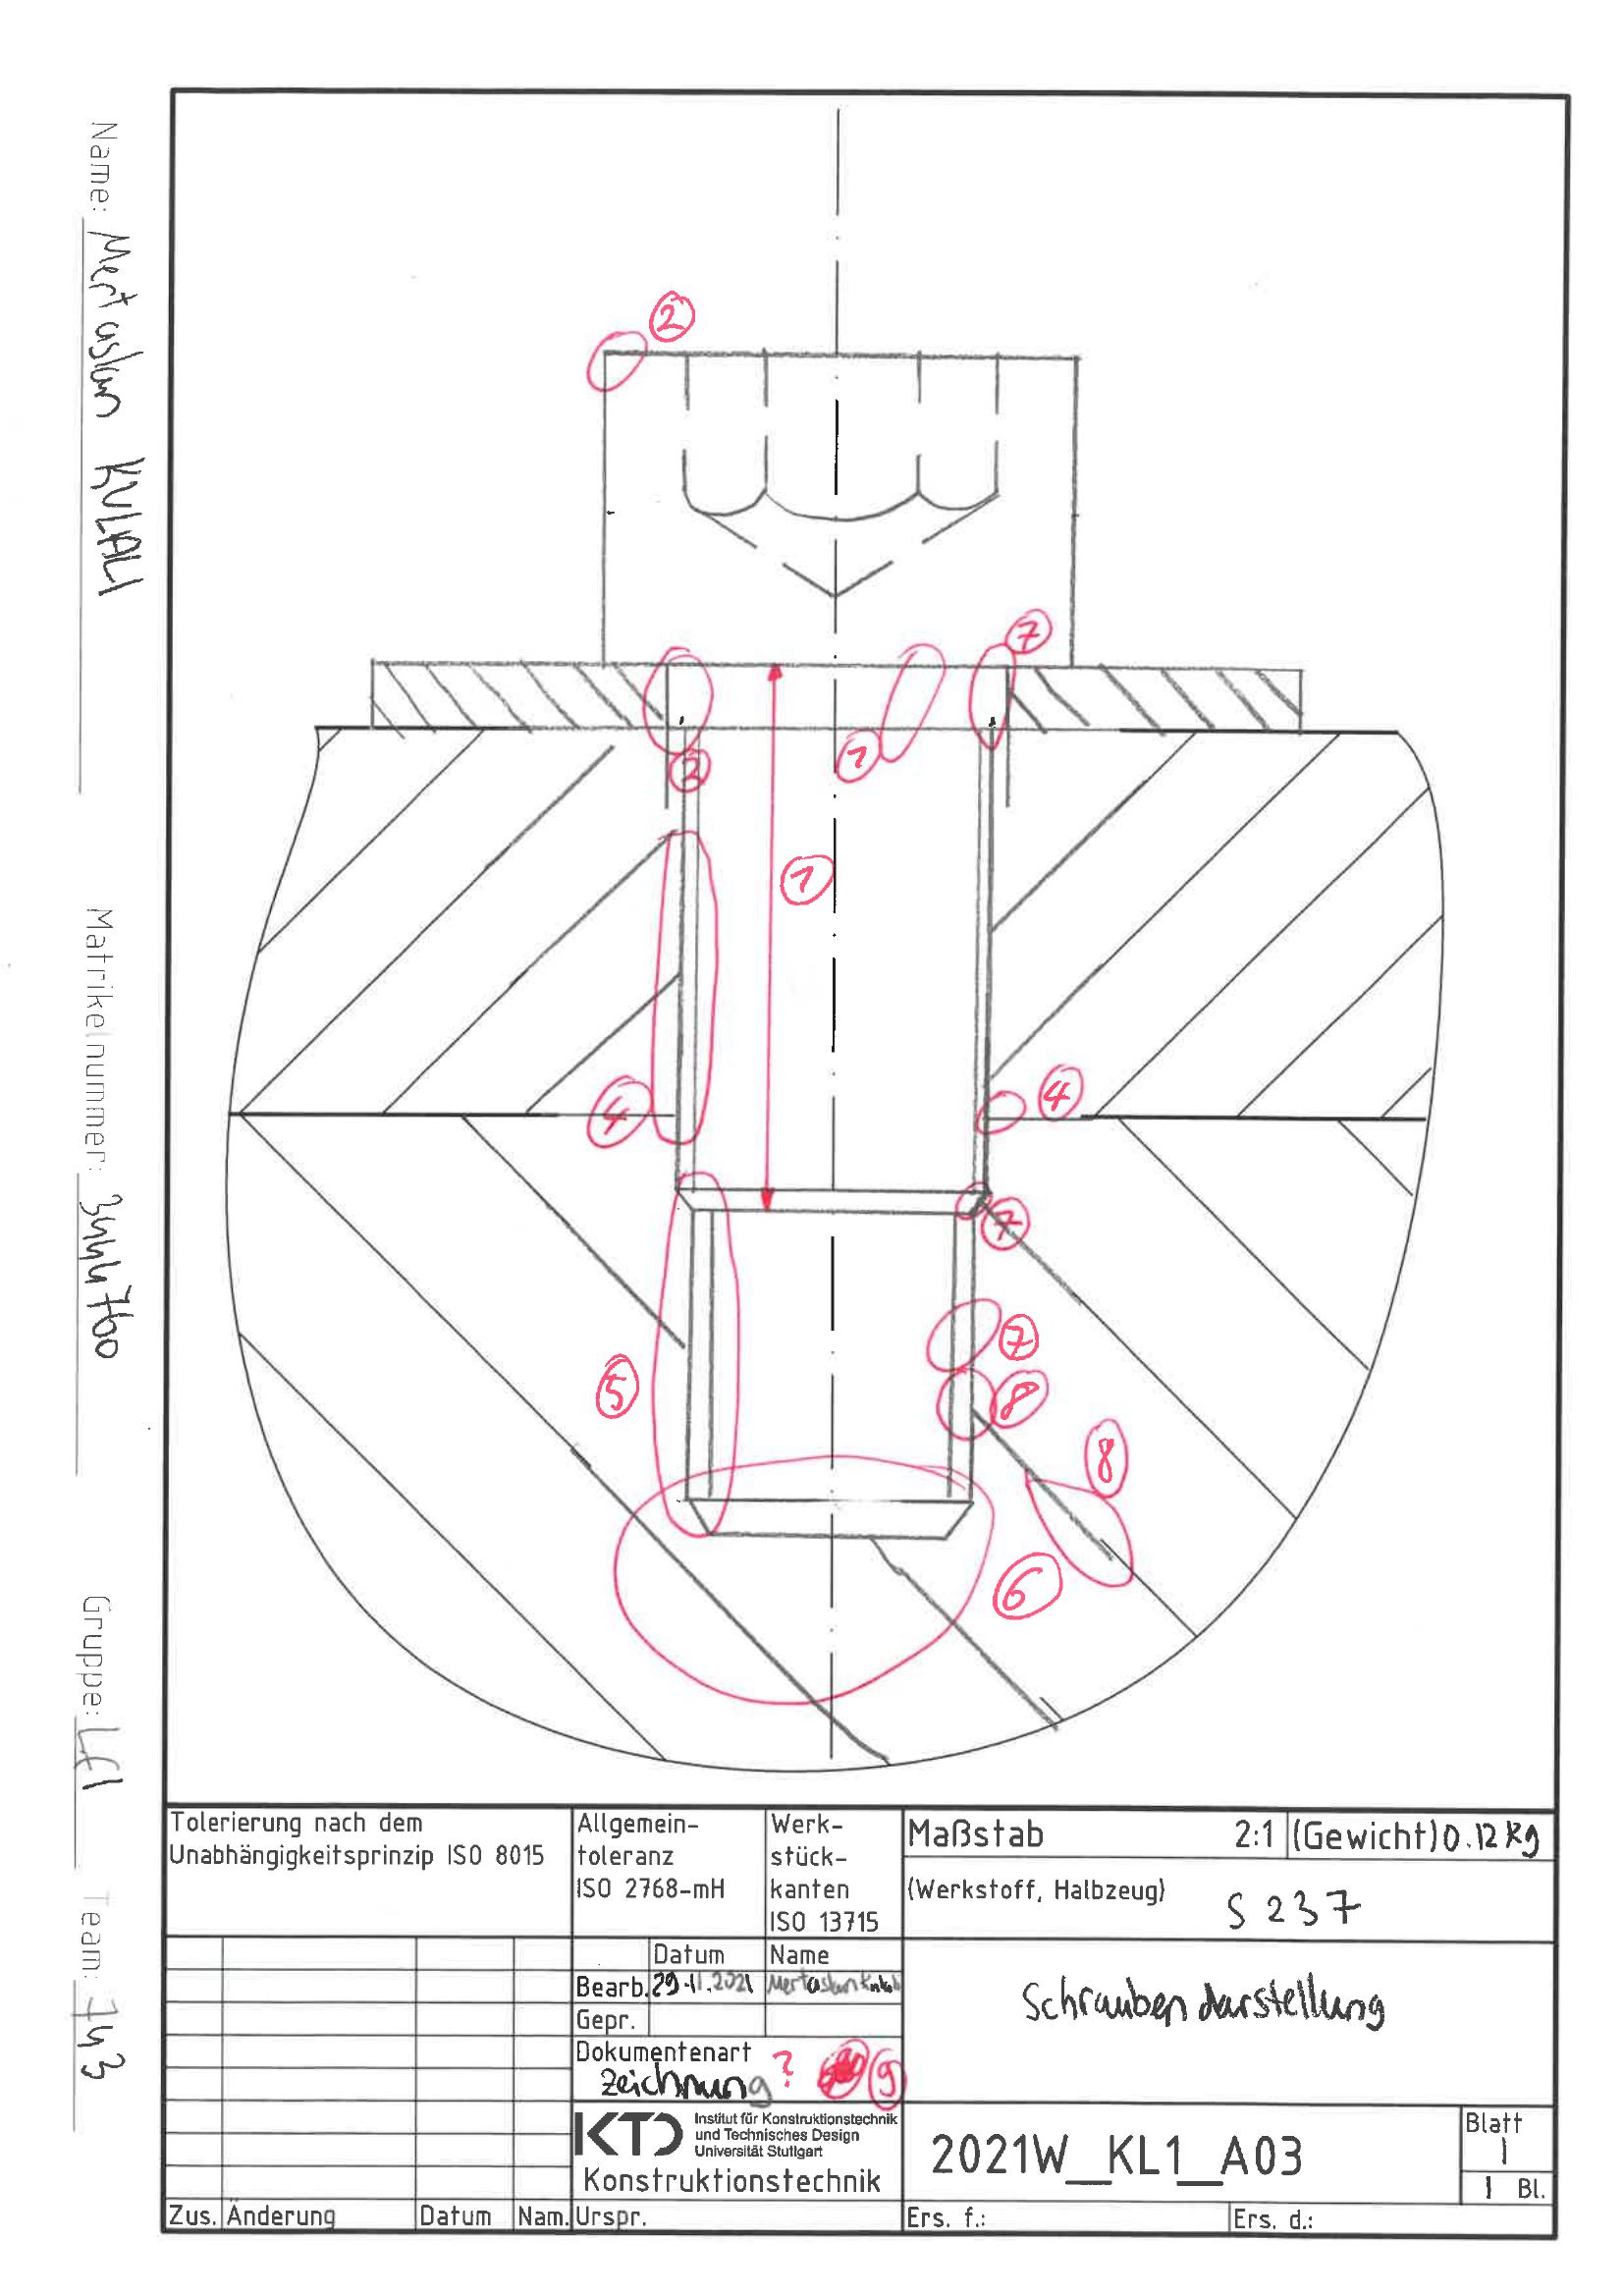 Name: Mert aslan KULALI
Matrikelnummer: 3444760
Gruppe: LC1
Team: 743
2
7
3
1
1
4
4
7
5
7
8
8
6
Tolerierung nach dem
Unabhängigkeitsprinzip ISO 8015
Allgemein-
toleranz
ISO 2768-mH
Werk-
stück-
kanten
ISO 13715
Maßstab 2:1 (Gewicht) 0.12 kg
(Werkstoff, Halbzeug) S 237
Datum Name
Bearb. 29.11.2021
Gepr.
Dokumentenart
Zeichnung ? 9
Schraubendarstellung
KTD Institut für Konstruktionstechnik
und Technisches Design
Universität Stuttgart
Konstruktionstechnik
2021W_KL1_A03
Blatt
1
1 Bl.
Zus. Änderung Datum Nam. Urspr. Ers. f.: Ers. d.: